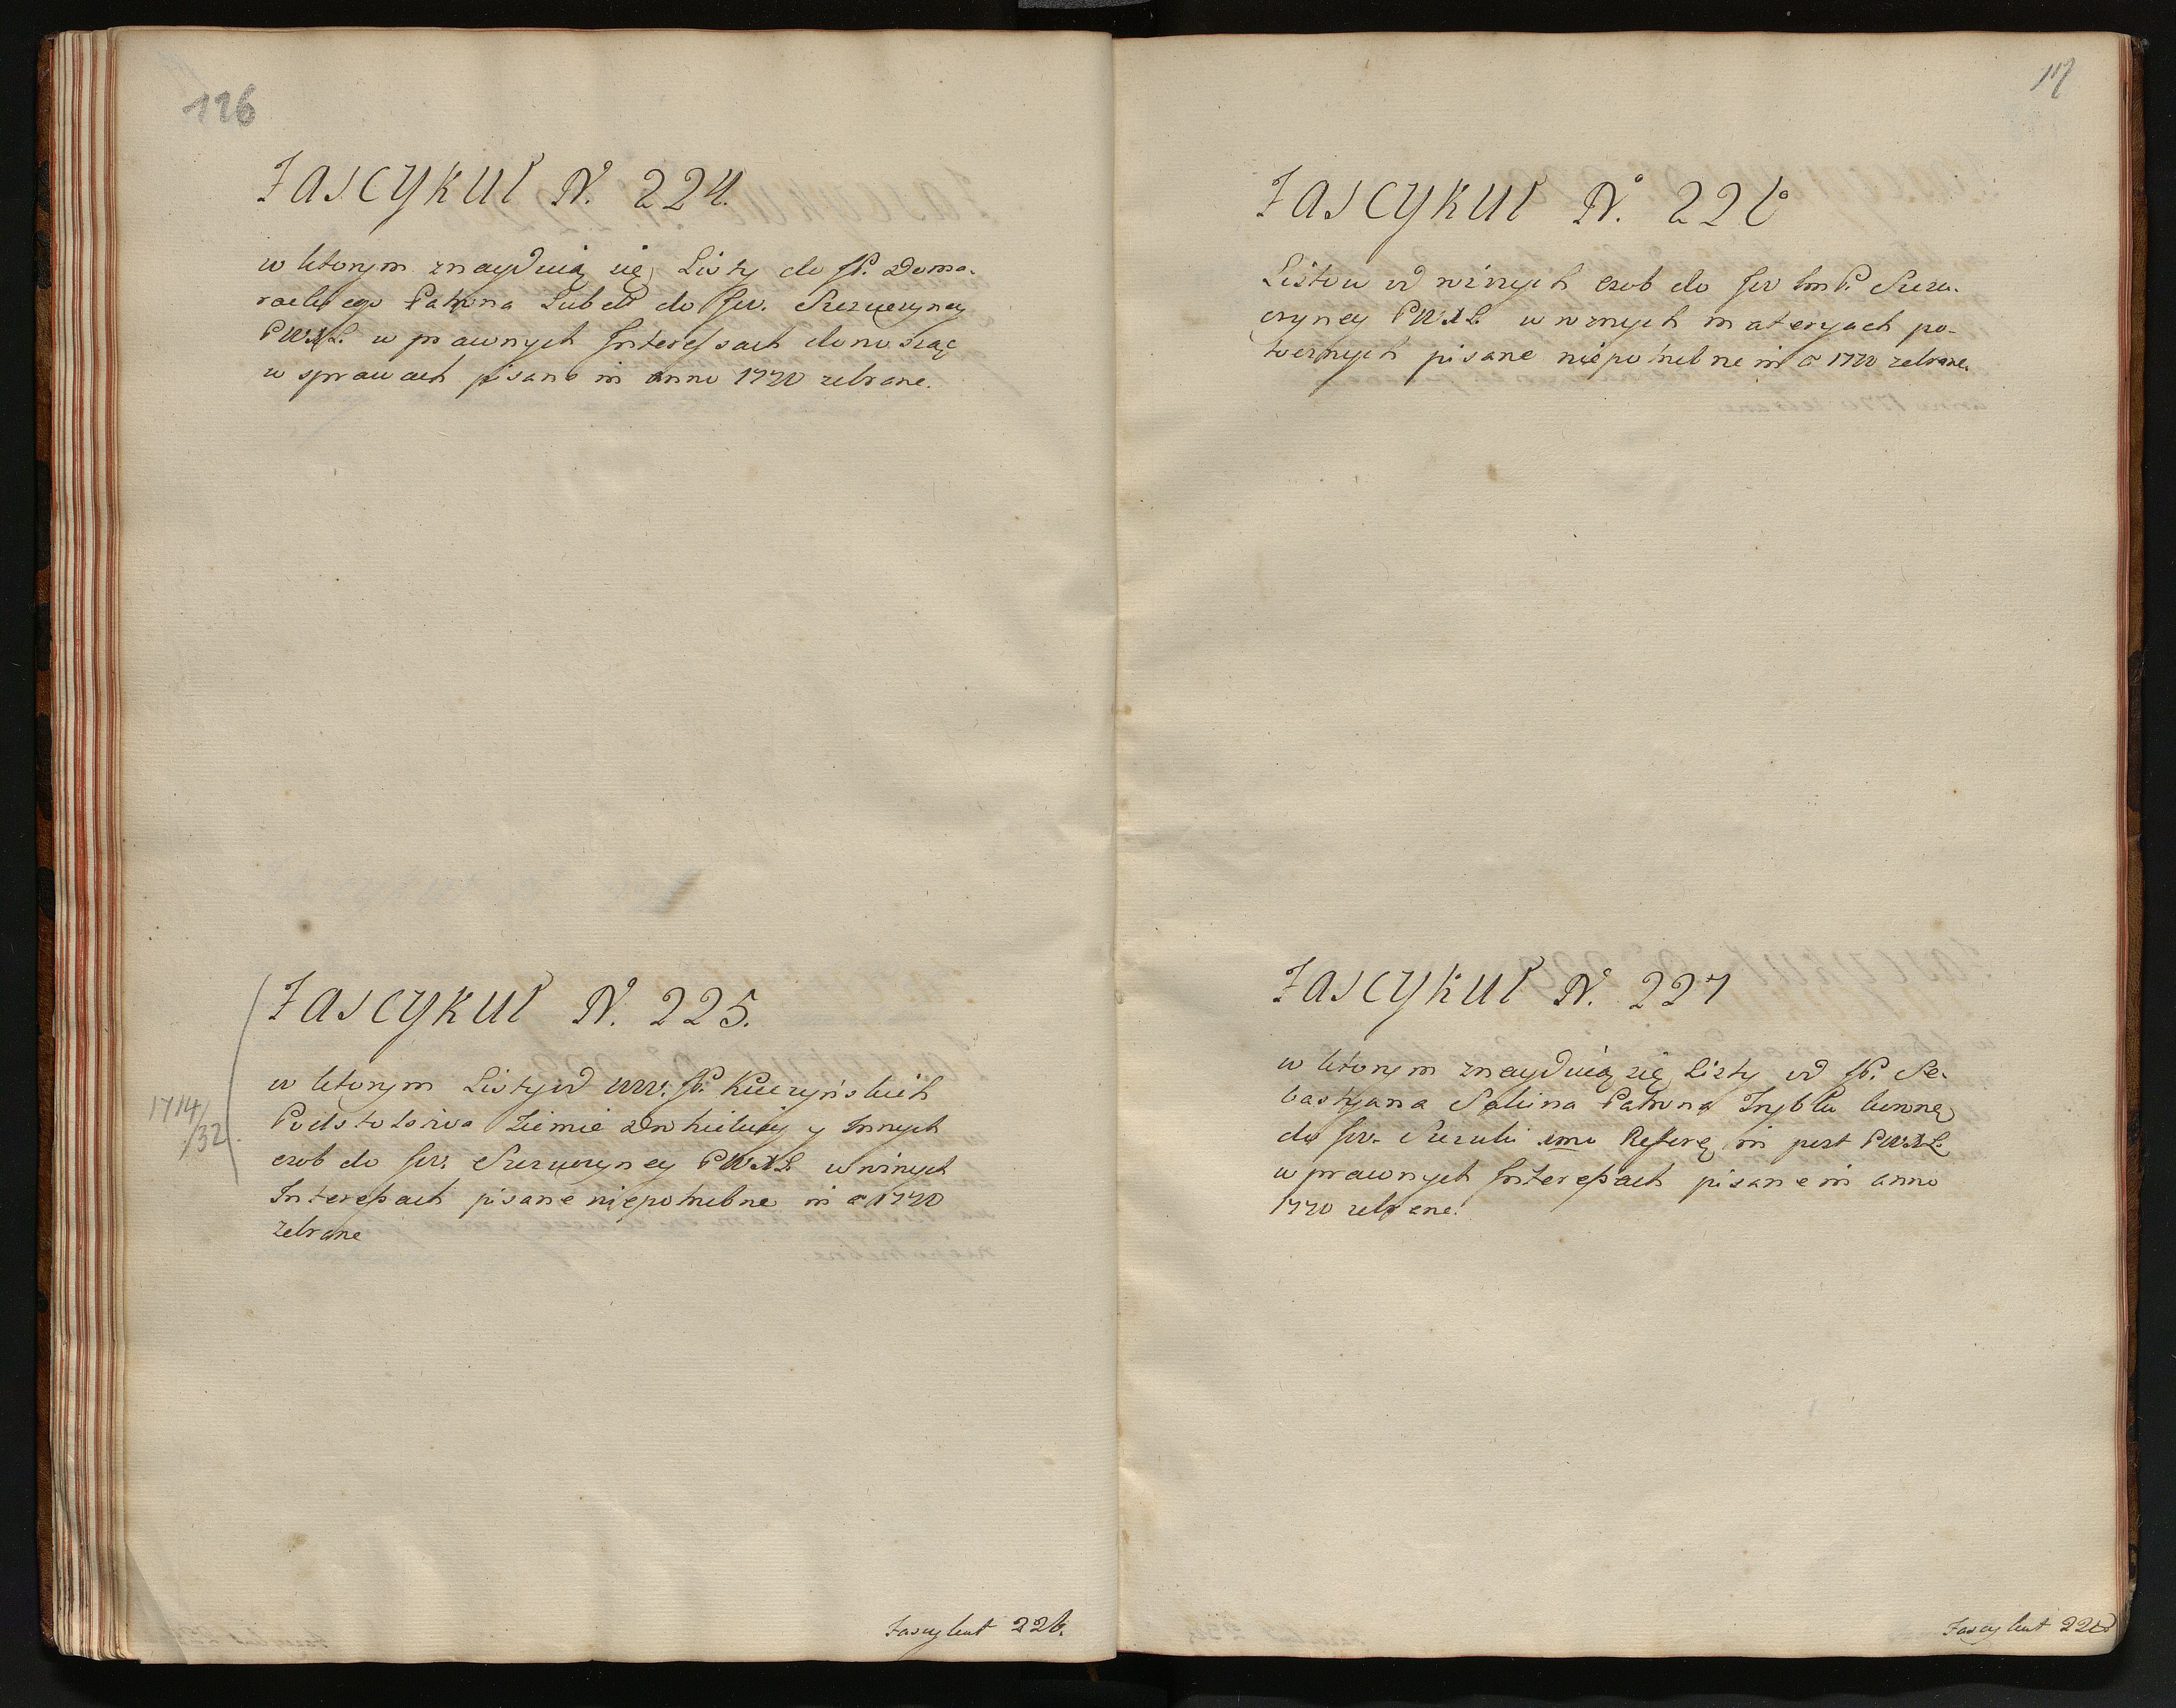 116
Fascykuł N. 224.
w ktorym znayduią się Listy do JP. Doma-
rackiego Patrona Lubel: do Jw.
PWXL. w prawnych Interessach donosząc
w sprawach pisane in anno 1770 zebrane.
Fascykuł N. 225.
w ktorym Listy od WW. JP. Kuczyńskich
Podstolstwa Ziemie Drohickiey y Innych
osob do Jw. PWXL w roznych
Interessach pisane niepotrzebne in ao 1770
zebrane
1714/
/32
Fascykuł 226.
117
Fascykuł N. 226
Listow od roznych osob do Jw ImP.
PWXL w roznych materyach po-
tocznych pisane niepotrzebne in ao 1770 zebrane.
Fascykuł N. 227
w ktorym znayduią się Listy od JP. Se-
bastyana Patrona
do Jw. imo in post PWXL
w prawnych Interessach pisane in anno
1770 zebrane.
Fascykuł 228